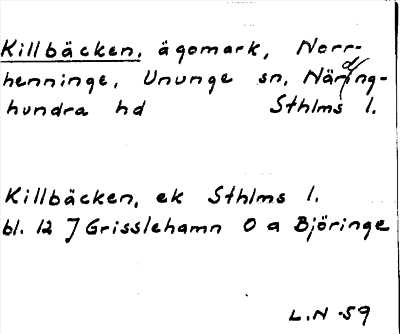 Killbäcken, ägomark, Norr-
henninge, Ununge sn, Närding-
hundra hd Sthlms l.
Killbäcken, ek Sthlms l.
bl. 12 J Grisslehamn O a Björinge
L.N -59